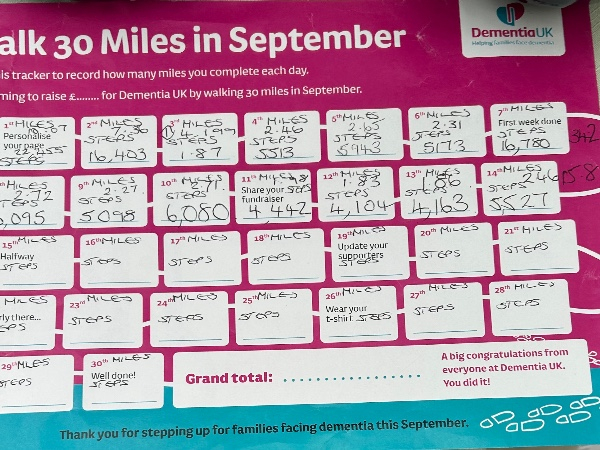 alk 30 Miles in September
DementiaUK
Helping families face dementia
is tracker to record how many miles you complete each day.
ming to raise £........ for Dementia UK by walking 30 miles in September.
1st MILES
Personalise
your page
STEPS
2nd MILES
7.36
STEPS
16,403
3rd MILES
STEPS
1.87
4th MILES
2.46
STEPS
5513
5th MILES
2.65
STEPS
5943
6th MILES
2.31
STEPS
5173
7th MILES
First week done
STEPS
16,780
MILES
2.72
STEPS
6,095
9th MILES
2.27
STEPS
5098
10th MILES
2.71
STEPS
6,080
11th MILES
Share your
fundraiser
4,442
12th MILES
1.83
STEPS
4,104
13th MILES
1.86
STEPS
4,163
14th MILES
2.46
STEPS
5527
15.8
15th MILES
Halfway
STEPS
16th MILES
STEPS
17th MILES
STEPS
18th MILES
STEPS
19th MILES
Update your
supporters
STEPS
20th MILES
STEPS
21st MILES
STEPS
MILES
rly there...
STEPS
23rd MILES
STEPS
24th MILES
STEPS
25th MILES
STEPS
26th MILES
Wear your
t-shirt STEPS
27th MILES
STEPS
28th MILES
STEPS
29th MILES
STEPS
30th MILES
Well done!
STEPS
Grand total: ....................
A big congratulations from
everyone at Dementia UK.
You did it!
Thank you for stepping up for families facing dementia this September.